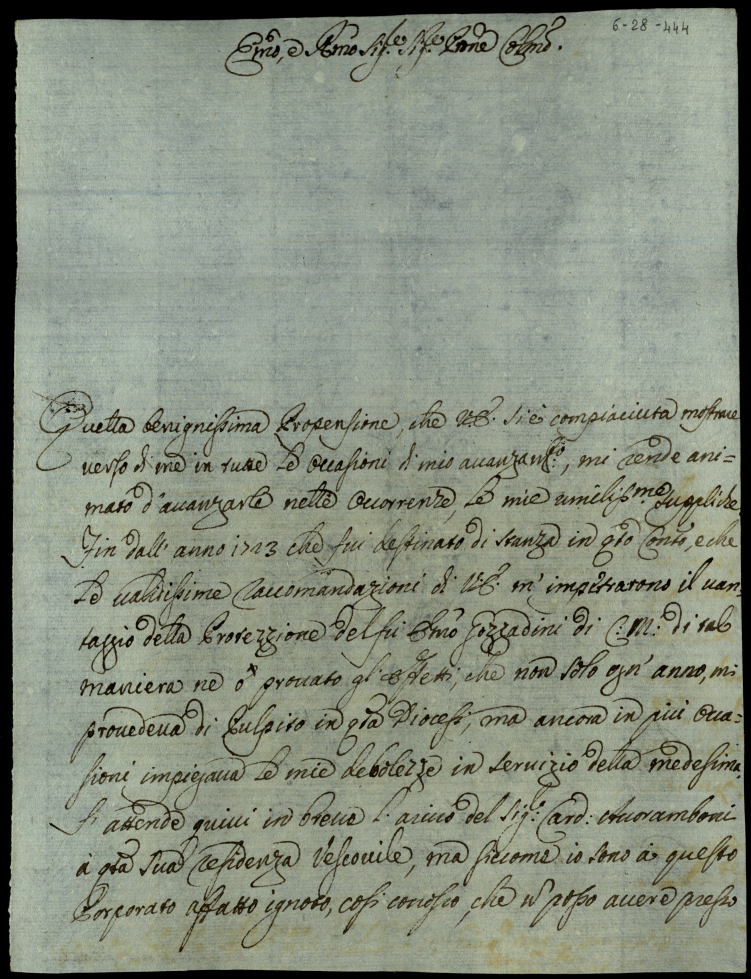 6-28-444
Emõ, e Rmõ Sig.re Sig.re Prone Colmõ.
Quella benignissima Propensione, che VE. si è compiaciuta mostrare
verso di me in tutte le Occasioni di mio avanzam.to, mi rende ani=
mato d'avanzarle nelle Occorrenze, le mie umiliss.me Suppliche.
Fin dall'anno 1723 che fui destinato di stanza in q̃to Conṽto, e che
le validissime raccomandazioni di VE. m'impetrarono il van=
taggio della Protezzione del fù Emõ Gozzadini di C: M: di tal
maniera ne ò provato gl'effetti, che non solo ogn'anno, mi
provedeva di Pulpito in q̃ta Diocesi, ma ancora in più Occa=
sioni impiegava le mie debolezze in servizio della medesima.
Si attende quivi in breve l'arivo del Sig.r Card: Accoramboni
à q̃ta Sua residenza Vescovile, ma siccome io sono à questo
Porporato affatto ignoto, così conosco, che ñ posso avere presso